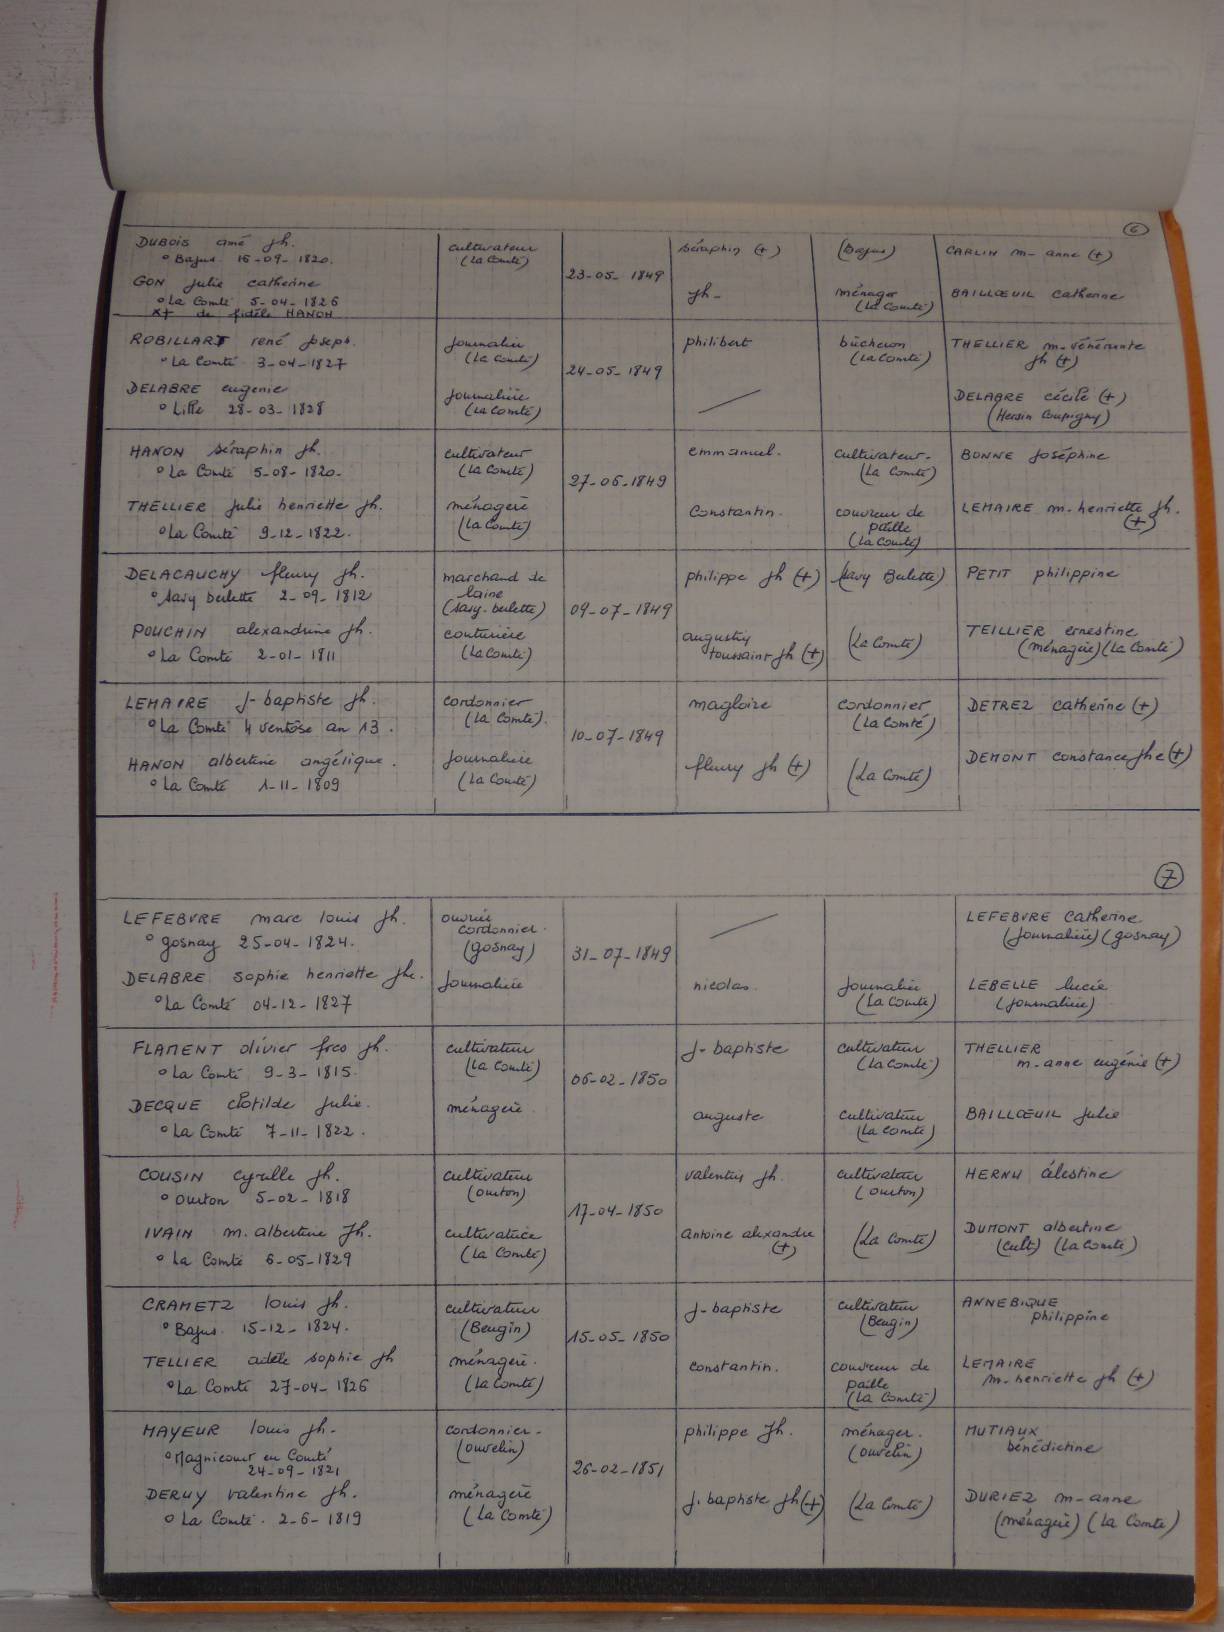 6
DUBOIS amé jh. cultivateur séraphin (+) (Bajus) CARLIN m-anne (+)
° Bajus 16-09-1820. (La Comté)
23-05-1849
GON julie catherine jh- ménager BAILLŒUIL catherine
° La Comté 5-04-1826 (La Comté)
x+ de fidèle HANON
ROBILLART rené joseph. journalier philibert bûcheron THELLIER m-vénérante
° La Comté 3-04-1827 (La Comté) (La Comté) jh (+)
24-05-1849
DELABRE eugenie journalière DELABRE cécile (+)
° Lille 28-03-1828 (La Comté) (Hersin Coupigny)
HANON séraphin jh. cultivateur emmanuel. cultivateur- BONNE joséphine
° La Comté 5-08-1820- (La Comté) (La Comté)
27-06-1849
THELLIER julie henriette jh. ménagère Constantin. couvreur de LEMAIRE m-henriette jh.
° La Comté 9-12-1822. (La Comté) paille (+)
(La Comté)
DELACAUCHY fleury jh. marchand de philippe jh (+) (savy Berlette) PETIT philippine
° savy berlette 2-09-1812 laine
(savy-berlette) 09-07-1849
POUCHIN alexandrine jh. couturière augustin (La Comté) TEILLIER ernestine
° La Comté 2-01-1811 (La Comté) toussaint jh (+) (ménagère) (La Comté)
LEMAIRE j-baptiste jh. cordonnier magloire cordonnier DETREZ catherine (+)
° La Comté 4 ventôse an 13. (La Comté). (La Comté)
10-07-1849
HANON albertine angélique. journalière fleury jh (+) (La Comté) DEMONT constance jhe (+)
° La Comté 1-11-1809 (La Comté)
7
LEFEBVRE marc louis jh. ouvrier LEFEBVRE catherine
° gosnay 25-04-1824. cordonnier. (journalière) (gosnay)
(gosnay) 31-07-1849
DELABRE sophie henriette jhe. journalière nicolas. journalier LEBELLE lucie
° La Comté 04-12-1827 (La Comté) (journalière)
FLAMENT olivier frco jh. cultivateur j-baptiste cultivateur THELLIER
° La Comté 9-3-1815. (La Comté) (La Comté) m-anne eugénie (+)
06-02-1850
DECQUE clotilde julie. ménagère auguste cultivateur BAILLŒUIL julie
° La Comté 7-11-1822. (La Comté)
COUSIN cyrille jh. cultivateur valentin jh. cultivateur HERNU célestine
° ourton 5-02-1818 (ourton) (ourton)
17-04-1850
IVAIN m. albertine jh. cultivatrice antoine alexandre (La Comté) DUMONT albertine
° La Comté 6-05-1829 (La Comté) (+) (cult) (La Comté)
CRAMETZ louis jh. cultivateur j-baptiste cultivateur ANNEBIQUE
° Bajus. 15-12-1824. (Beugin) (Beugin) philippine
15-05-1850
TELLIER adèle sophie jh ménagère. constantin. couvreur de LEMAIRE
° La Comté 27-04-1826 (La Comté) paille m-henriette jh (+)
(La Comté)
MAYEUR louis jh- cordonnier- philippe jh. ménager. MUTIAUX
° Magnicourt en Comté (ouvelin) (ouvelin) bénédictine
24-09-1821
26-02-1851
DERUY valentine jh. ménagère j. baptiste jh (+) (La Comté) DURIEZ m-anne
° La Comté. 2-6-1819 (La Comté) (ménagère) (La Comté)